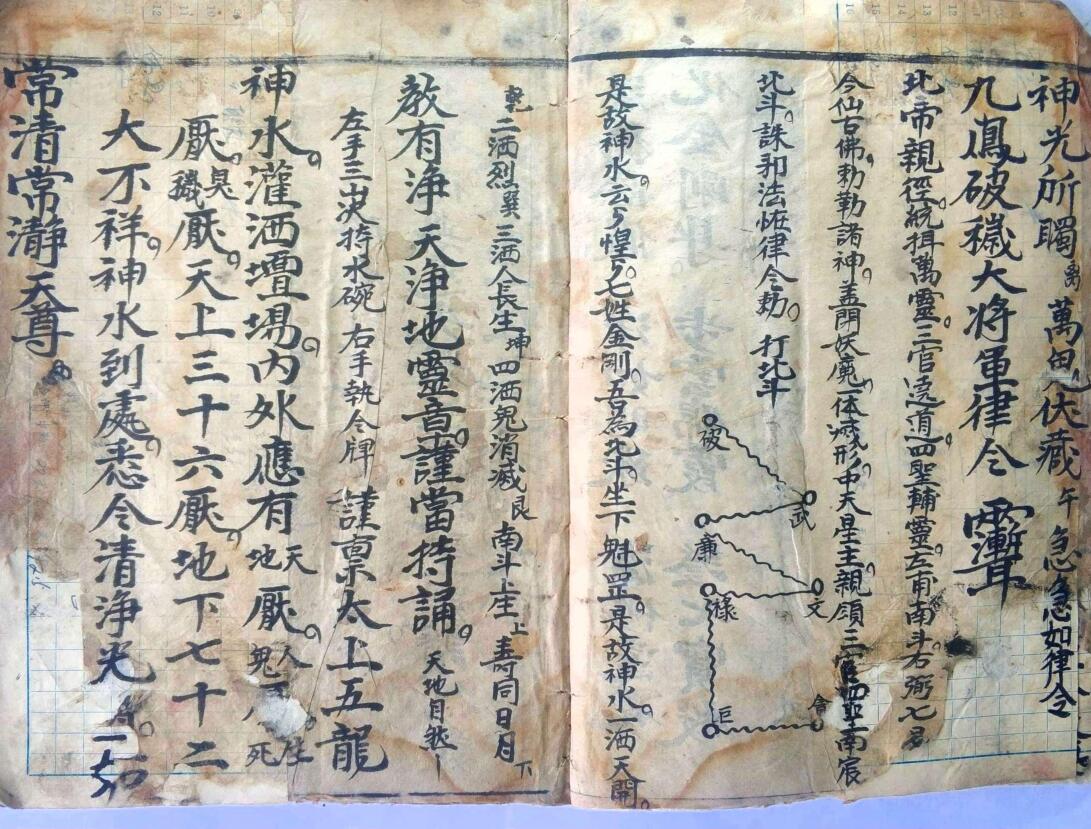 神光所躅離萬鬼伏藏午急急如律令
九鳳破穢大将軍律令
北帝親徑統揖萬靈三官遠道四聖輔靈左甫南斗右弼七
今仙古佛勅勒諸神盖閉妖魔一体滅形中天星主親領三官四聖南宸
北斗誅邪法恢律令勅打北斗
破
武
廉
文
祿
巨
是故神水云云惶惶七姓金剛吾為北斗坐下魁罡是故神水一洒天開
乾二洒烈巽三洒人長生坤四洒鬼消滅艮南斗上座上壽同日月下
教有浄天浄地靈音謹當持誦天地自然
左手三山决持水碗右手執令牌謹禀太上五龍
神水灌洒壇場内外應有天地厭人鬼生死
厭臭穢厭天上三十六厭地下七十二
大不祥神水到處悉令清浄光一如
常清常瀞天尊